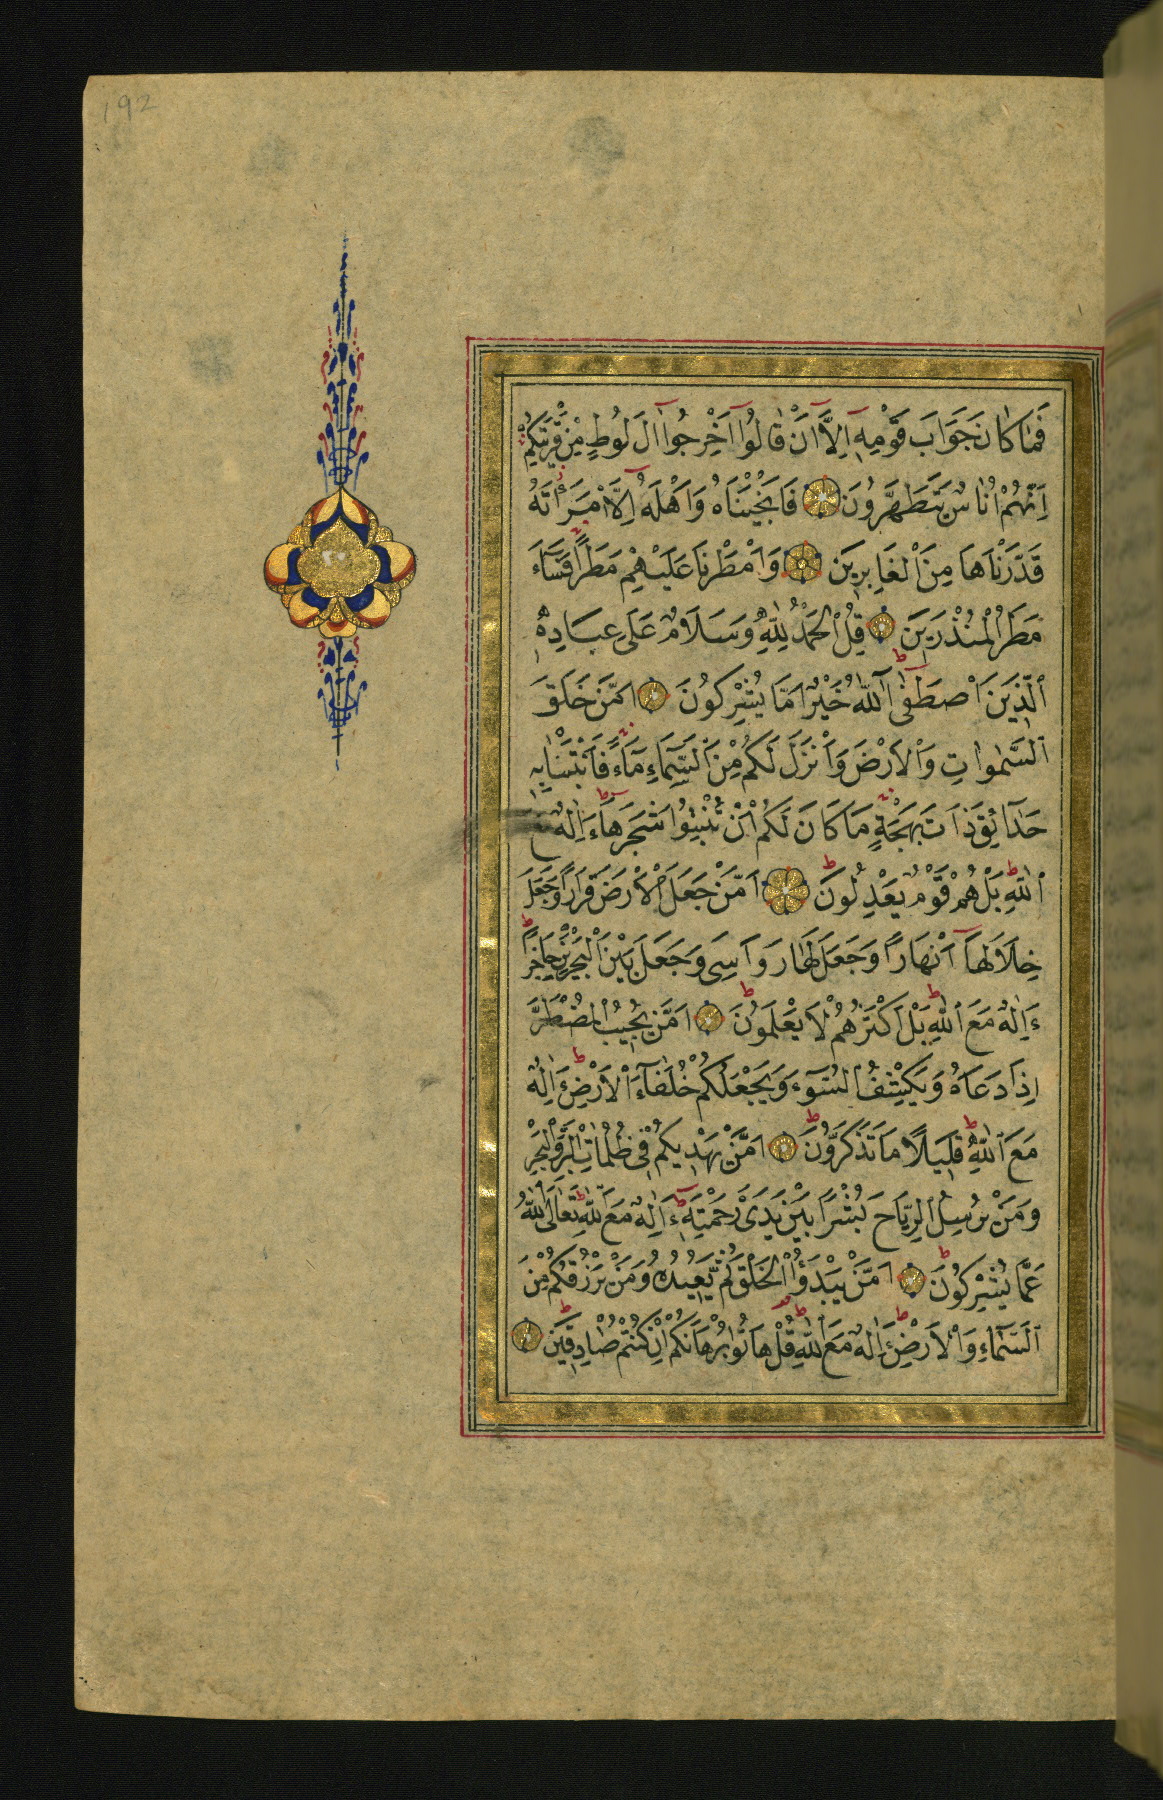 192
٢٠
فَمَا كَانَ جَوَابَ قَوْمِهِ اِلَّآ اَنْ قَالُوآ اَخْرِجُوآ اٰلَ لُوطٍ مِنْ قَرْيَتِكُمْ
اِنَّهُمْ اُنَاسٌ يَتَطَهَّرُونَ فَاَنْجَيْنَاهُ وَاَهْلَهُ اِلَّا امْرَاَتَهُ
قَدَّرْنَاهَا مِنَ الْغَابِرِينَ وَاَمْطَرْنَا عَلَيْهِمْ مَطَرًا فَسَآءَ
مَطَرُ الْمُنْذَرِينَ قُلِ الْحَمْدُ لِلّٰهِ وَسَلَامٌ عَلَى عِبَادِهِ
ٱلَّذِينَ اصْطَفٰى ءَآللّٰهُ خَيْرٌ اَمَّا يُشْرِكُونَ اَمَّنْ خَلَقَ
ٱلسَّمٰوَاتِ وَالْاَرْضَ وَاَنْزَلَ لَكُمْ مِنَ السَّمَآءِ مَآءً فَاَنْبَتْنَا بِهِ
حَدَآئِقَ ذَاتَ بَهْجَةٍ مَا كَانَ لَكُمْ اَنْ تُنْبِتُوا شَجَرَهَا ءَاِلٰهٌ مَعَ
ٱللّٰهِ بَلْ هُمْ قَوْمٌ يَعْدِلُونَ اَمَّنْ جَعَلَ الْاَرْضَ قَرَارًا وَجَعَلَ
خِلَالَهَآ اَنْهَارًا وَجَعَلَ لَهَا رَوَاسِيَ وَجَعَلَ بَيْنَ الْبَحْرَيْنِ حَاجِزًا
ءَاِلٰهٌ مَعَ ٱللّٰهِ بَلْ اَكْثَرُهُمْ لَا يَعْلَمُونَ اَمَّنْ يُجِيبُ الْمُضْطَرَّ
اِذَا دَعَاهُ وَيَكْشِفُ السُّوٓءَ وَيَجْعَلُكُمْ خُلَفَآءَ الْاَرْضِ ءَاِلٰهٌ
مَعَ ٱللّٰهِ قَلِيلًا مَا تَذَكَّرُونَ اَمَّنْ يَهْدِيكُمْ فِي ظُلُمَاتِ الْبَرِّ وَالْبَحْرِ
وَمَنْ يُرْسِلُ الرِّيَاحَ بُشْرًا بَيْنَ يَدَيْ رَحْمَتِهِ ءَاِلٰهٌ مَعَ اللّٰهِ تَعَالَى اللّٰهُ
عَمَّا يُشْرِكُونَ اَمَّنْ يَبْدَؤُا الْخَلْقَ ثُمَّ يُعِيدُهُ وَمَنْ يَرْزُقُكُمْ مِنَ
ٱلسَّمَآءِ وَالْاَرْضِ ءَاِلٰهٌ مَعَ اللّٰهِ قُلْ هَاتُوا بُرْهَانَكُمْ اِنْ كُنْتُمْ صَادِقِينَ